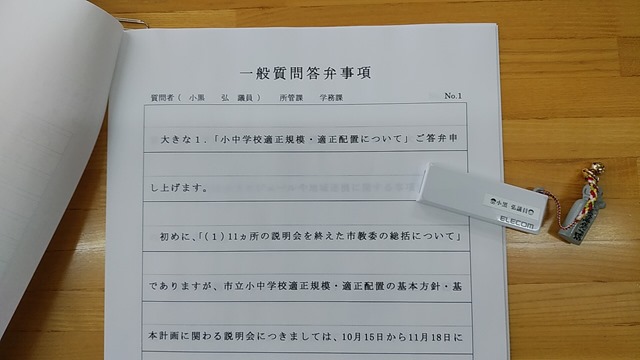 一般質問答弁事項
質問者（ 小黒 弘 議員 ） 所管課 学務課 No.1
大きな１．「小中学校適正規模・適正配置について」ご答弁申
し上げます。
初めに、「（１）11ヵ所の説明会を終えた市教委の総括について」
でありますが、市立小中学校適正規模・適正配置の基本方針・基
本計画に関わる説明会につきましては、10月15日から11月18日に
小黒 弘議員
ELECOM